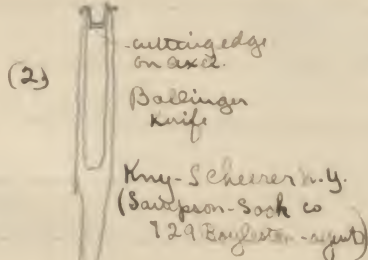 (2)
-cutting edge
on axel.
Ballinger
Knife
Kny-Scheerer N.Y.
(Sampson-Soch co
729 Boylston-agent)